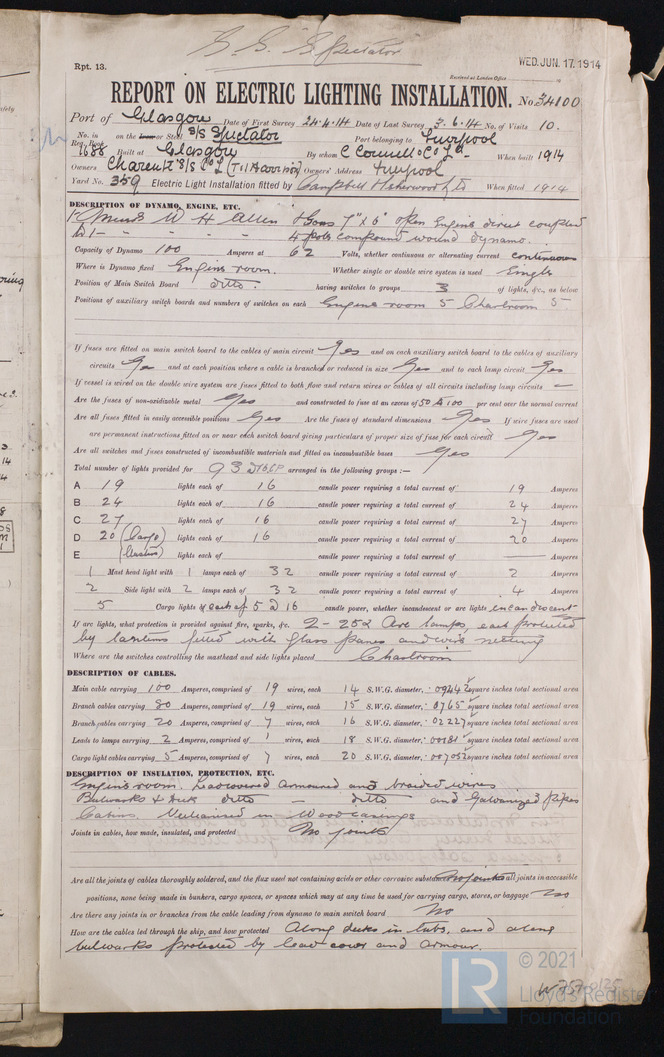 S.S. "Spectator"
Rpt. 13.
WED. JUN. 17. 1914
Received at London Office
REPORT ON ELECTRIC LIGHTING INSTALLATION. No. 34100
Port of Glasgow Date of First Survey 24.4.14 Date of Last Survey 3.6.14 No. of Visits 10.
No. in Reg. Book 1688 on the Iron or Steel S/S Spectator Port belonging to Liverpool
Built at Glasgow By whom C Connell & Co Ld When built 1914
Owners Charente S/S Co Ld (T & J Harrison) Owners' Address Liverpool
Yard No. 359 Electric Light Installation fitted by Campbell & Isherwood Ltd When fitted 1914
DESCRIPTION OF DYNAMO, ENGINE, ETC.
W H Allen & Sons 7" x 6" open Engine direct coupled
to 1 - " - " - 4 pole compound wound dynamo.
Capacity of Dynamo 100 Amperes at 62 Volts, whether continuous or alternating current continuous
Where is Dynamo fixed Engine room. Whether single or double wire system is used Single
Position of Main Switch Board ditto having switches to groups 3 of lights, &c., as below
Positions of auxiliary switch boards and numbers of switches on each Engine room 5 Chartroom 5.
If fuses are fitted on main switch board to the cables of main circuit Yes and on each auxiliary switch board to the cables of auxiliary
circuits Yes and at each position where a cable is branched or reduced in size Yes and to each lamp circuit Yes
If vessel is wired on the double wire system are fuses fitted to both flow and return wires or cables of all circuits including lamp circuits —
Are the fuses of non-oxidizable metal Yes and constructed to fuse at an excess of 50 to 100 per cent over the normal current
Are all fuses fitted in easily accessible positions Yes Are the fuses of standard dimensions Yes If wire fuses are used
are permanent instructions fitted on or near each switch board giving particulars of proper size of fuse for each circuit Yes
Are all switches and fuses constructed of incombustible materials and fitted on incombustible bases Yes
Total number of lights provided for 93 D16CP arranged in the following groups :—
A 19 lights each of 16 candle power requiring a total current of 19 Amperes
B 24 lights each of 16 candle power requiring a total current of 24 Amperes
C 27 lights each of 16 candle power requiring a total current of 27 Amperes
D 20 (Cargo) lights each of 16 candle power requiring a total current of 20 Amperes
E (clusters) lights each of candle power requiring a total current of — Amperes
1 Mast head light with 1 lamps each of 32 candle power requiring a total current of 2 Amperes
2 Side light with 2 lamps each of 32 candle power requiring a total current of 4 Amperes
5 Cargo lights of each of 5 D 16 candle power, whether incandescent or arc lights incandescent
If arc lights, what protection is provided against fire, sparks, &c. 2 - 25a Arc lamps, each protected
by lanterns fitted with glass panes and wire netting
Where are the switches controlling the masthead and side lights placed Chartroom
DESCRIPTION OF CABLES.
Main cable carrying 100 Amperes, comprised of 19 wires, each 14 S.W.G. diameter, .09442 square inches total sectional area
Branch cables carrying 80 Amperes, comprised of 19 wires, each 15 S.W.G. diameter, .0765 square inches total sectional area
Branch cables carrying 20 Amperes, comprised of 7 wires, each 16 S.W.G. diameter, .02227 square inches total sectional area
Leads to lamps carrying 2 Amperes, comprised of 1 wires, each 18 S.W.G. diameter, .00181 square inches total sectional area
Cargo light cables carrying 5 Amperes, comprised of 7 wires, each 20 S.W.G. diameter, .007052 square inches total sectional area
DESCRIPTION OF INSULATION, PROTECTION, ETC.
Engine room. Leadcovered armoured and braided wires
Bulwarks & decks ditto — ditto and Galvanized pipes
Cabins. Vulcanised in Wood casings
Joints in cables, how made, insulated, and protected No joints
Are all the joints of cables thoroughly soldered, and the flux used not containing acids or other corrosive substances No joints all joints in accessible
positions, none being made in bunkers, cargo spaces, or spaces which may at any time be used for carrying cargo, stores, or baggage No
Are there any joints in or branches from the cable leading from dynamo to main switch board No
How are the cables led through the ship, and how protected Along decks in tubs, and along
bulwarks protected by lead cover and armour.
© 2021
LR
Lloyd's Register
Foundation